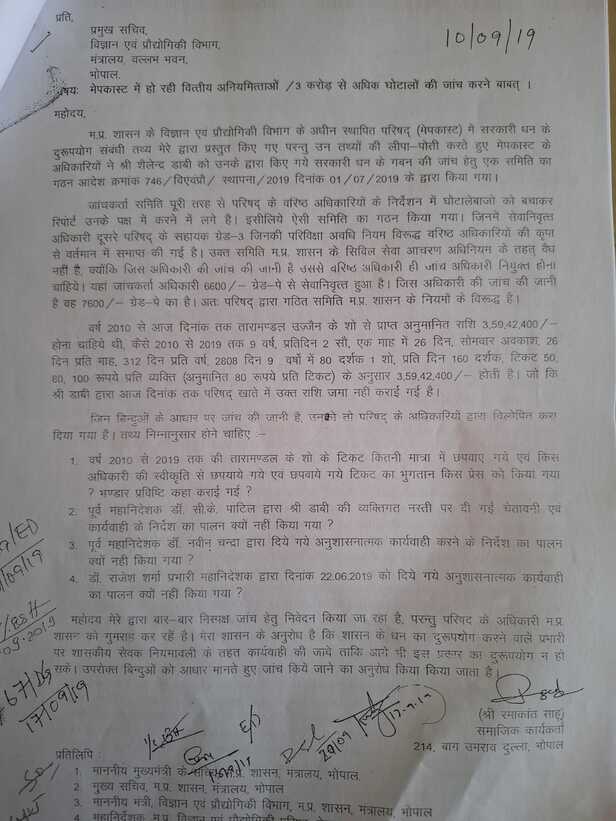 प्रति,
10/09/19
प्रमुख सचिव,
विज्ञान एवं प्रौद्योगिकी विभाग,
मंत्रालय, वल्लभ भवन,
भोपाल.
विषय: मेपकास्ट में हो रही वित्तीय अनियमित्ताओं /3 करोड़ से अधिक घोटालों की जांच करने बाबत् ।
महोदय,
म.प्र. शासन के विज्ञान एवं प्रौद्योगिकी विभाग के अधीन स्थापित परिषद् (मेपकास्ट) में सरकारी धन के
दुरूपयोग संबंधी तथ्य मेरे द्वारा प्रस्तुत किए गए परन्तु उन तथ्यों की लीपा-पोती करते हुए मेपकास्ट के
अधिकारियों ने श्री शैलेन्द्र डाबी को उनके द्वारा किए गये सरकारी धन के गबन की जांच हेतु एक समिति का
गठन आदेश क्रमांक 746/विएवंप्रौ/ स्थापना/2019 दिनांक 01/07/2019 के द्वारा किया गया।
जांचकर्ता समिति पूरी तरह से परिषद् के वरिष्ठ अधिकारियों के निर्देशन में घोटालेबाजो को बचाकर
रिपोर्ट उनके पक्ष में करने में लगे है। इसीलिये ऐसी समिति का गठन किया गया। जिनमें सेवानिवृत्त
अधिकारी दूसरे परिषद् के सहायक ग्रेड-3 जिनकी परिविक्षा अवधि नियम विरूद्ध वरिष्ठ अधिकारियों की कृपा
से वर्तमान में समाप्त की गई है। उक्त समिति म.प्र. शासन के सिविल सेवा आचरण अधिनियम के तहत् वैध
नहीं है, क्योंकि जिस अधिकारी की जांच की जानी है उससे वरिष्ठ अधिकारी ही जांच अधिकारी नियुक्त होना
चाहिये। यहां जांचकर्ता अधिकारी 6600/- ग्रेड-पे से सेवानिवृत्त हुआ है। जिस अधिकारी की जांच की जानी
है वह 7600/- ग्रेड-पे का है। अतः परिषद् द्वारा गठित समिति म.प्र. शासन के नियमों के विरूद्ध है।
वर्ष 2010 से आज दिनांक तक तारामण्डल उज्जैन के शो से प्राप्त अनुमानित राशि 3,59,42,400/-
होना चाहिये थी, कैसे 2010 से 2019 तक 9 वर्ष, प्रतिदिन 2 सौ, एक माह में 26 दिन, सोमवार अवकाश, 26
दिन प्रति माह, 312 दिन प्रति वर्ष, 2808 दिन 9 वर्षो में 80 दर्शक 1 शो, प्रति दिन 160 दर्शक, टिकट 50,
80, 100 रूपये प्रति व्यक्ति (अनुमानित 80 रूपये प्रति टिकट) के अनुसार 3,59,42,400/- होती है। जो कि
श्री डाबी द्वारा आज दिनांक तक परिषद् खाते में उक्त राशि जमा नहीं कराई गई है।
जिन बिन्दुओं के आधार पर जांच की जानी है, उनको तो परिषद् के अधिकारियों द्वारा विलोपित करा
दिया गया है। तथ्य निम्नानुसार होने चाहिए :-
1. वर्ष 2010 से 2019 तक की तारामण्डल के शो के टिकट कितनी मात्रा में छपवाए गये एवं किस
अधिकारी की स्वीकृति से छपयाये गये एवं छपवाये गये टिकट का भुगतान किस प्रेस को किया गया
? भण्डार प्रविष्टि कहा कराई गई ?
2. पूर्व महानिदेशक डॉ. सी.के. पाटिल द्वारा श्री डाबी की व्यक्तिगत नस्ती पर दी गई चेतावनी एवं
कार्यवाही के निर्देश का पालन क्यों नहीं किया गया ?
3. पूर्व महानिदेशक डॉ. नवीन चन्द्रा द्वारा दिये गये अनुशासनात्मक कार्यवाही करने के निर्देश का पालन
क्यों नहीं किया गया ?
4. डॉ. राजेश शर्मा प्रभारी महानिदेशक द्वारा दिनांक 22.06.2019 को दिये गये अनुशासनात्मक कार्यवाही
का पालन क्यों नहीं किया गया ?
महोदय मेरे द्वारा बार-बार निष्पक्ष जांच हेतु निवेदन किया जा रहा है, परन्तु परिषद के अधिकारी म.प्र.
शासन को गुमराह कर रहें है। मेरा शासन के अनुरोध है कि शासन के धन का दुरूपयोग करने वाले प्रभारी
पर शासकीय सेवक नियमावली के तहत कार्यवाही की जाये ताकि आगे भी इस प्रकार का दुरूपयोग न हो
सके। उपरोक्त बिन्दुओं को आधार मानते हुए जांच किये जाने का अनुरोध किया किया जाता है।
17/09/19
(श्री रमाकांत साहू)
समाजिक कार्यकर्ता
214, बाग उमराव दुल्ला, भोपाल
प्रतिलिपि :
1. माननीय मुख्यमंत्री के सचिव म.प्र. शासन, मंत्रालय, भोपाल.
2. मुख्य सचिव, म.प्र. शासन, मंत्रालय, भोपाल
3. माननीय मंत्री, विज्ञान एवं प्रौद्योगिकी विभाग, म.प्र. शासन, मंत्रालय, भोपाल
4. महानिदेशक, म.प्र. विज्ञान एवं प्रौद्योगिकी परिषद